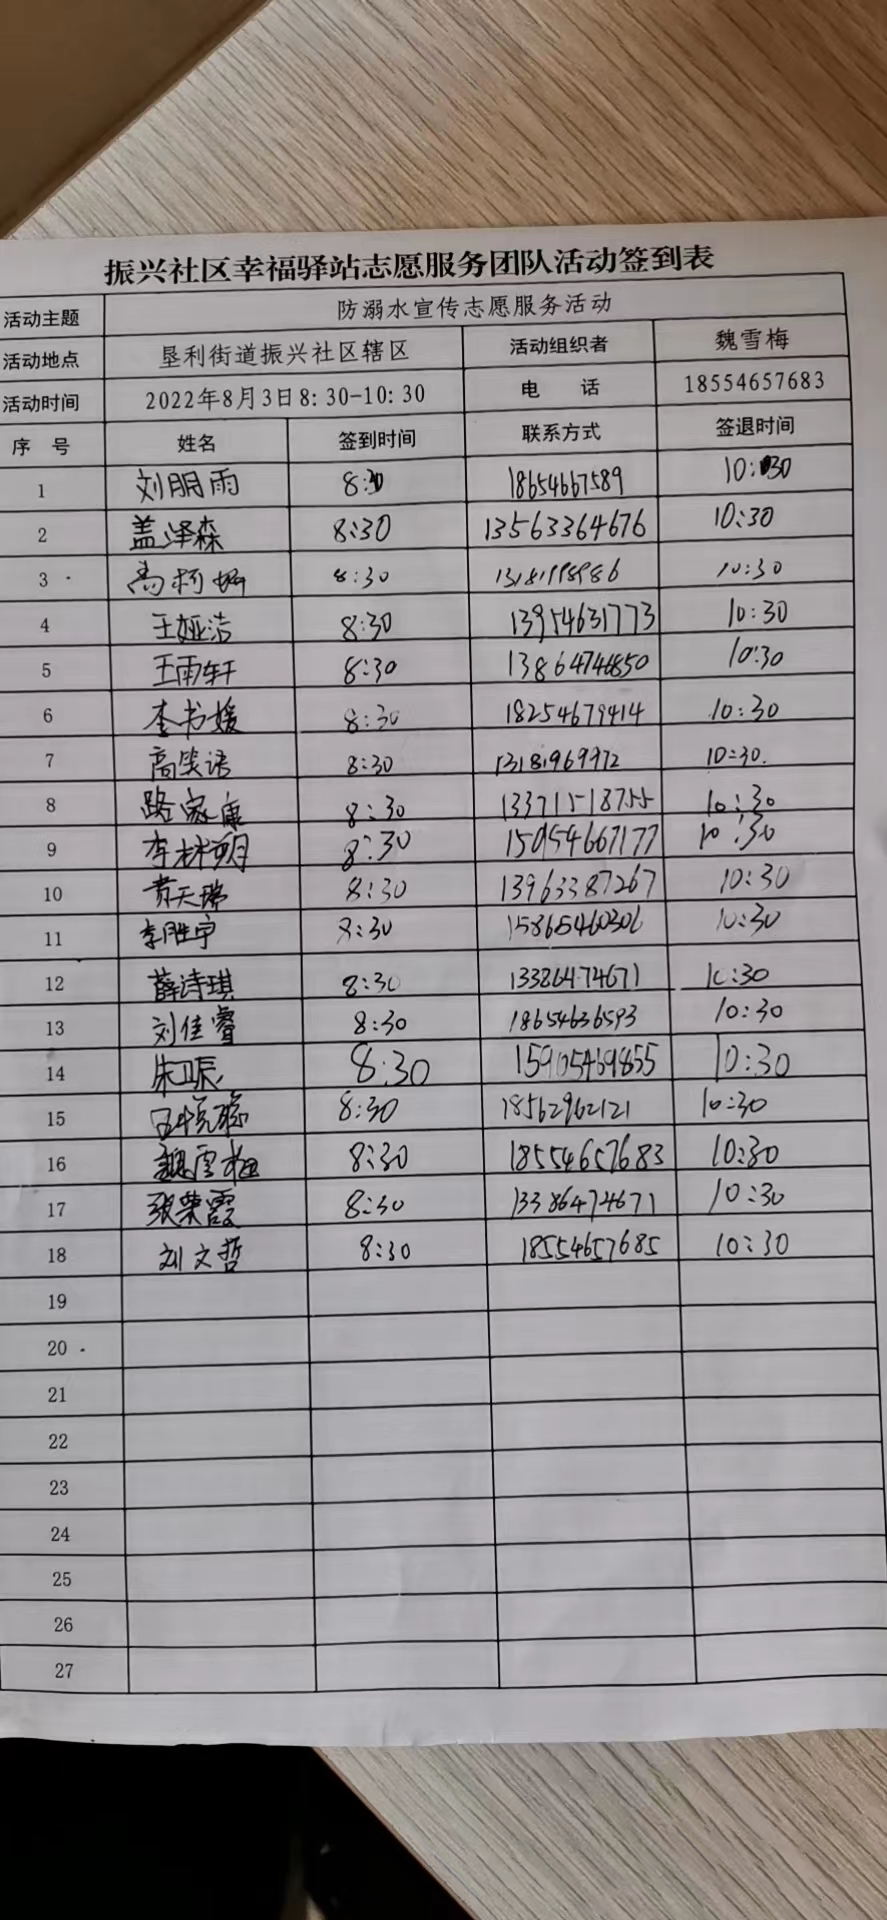 振兴社区幸福驿站志愿服务团队活动签到表
活动主题 防溺水宣传志愿服务活动
活动地点 垦利街道振兴社区辖区 活动组织者 魏雪梅
活动时间 2022年8月3日8:30-10:30 电 话 18554657683
序 号 姓名 签到时间 联系方式 签退时间
1 刘朋雨 8:30 18654667589 10:30
2 盖泽森 8:30 13563364676 10:30
3 高柯 8:30 10:30
4 王娅洁 8:30 13954631773 10:30
5 王雨轩 8:30 10:30
6 李书媛 8:30 18254679414 10:30
7 高笑语 8:30 13181969972 10:30
8 路家康 8:30 13371518755 10:30
9 李林明 8:30 15054667177 10:30
10 黄天瑞 8:30 13963387267 10:30
11 李胜宇 8:30 15865460306 10:30
12 薛诗琪 8:30 13386474671 10:30
13 刘佳睿 8:30 18654636593 10:30
14 朱卫辰 8:30 15905469855 10:30
15 8:30 18562962121 10:30
16 魏雪梅 8:30 18554657683 10:30
17 张荣霞 8:30 13386474671 10:30
18 刘文哲 8:30 18554657685 10:30
19
20
21
22
23
24
25
26
27